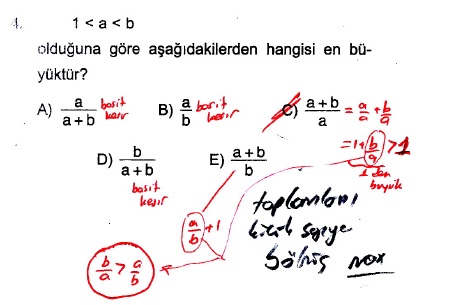 4. 1 < a < b
olduğuna göre aşağıdakilerden hangisi en bü-
yüktür?
A) a/(a+b) basit kesir B) a/b basit kesir C) (a+b)/a = a/a + b/a
= 1 + b/a > 1
1 den büyük
D) b/(a+b) basit kesir E) (a+b)/b
a/b + 1
toplamları
küçük sayıya
bölüş max
b/a > a/b